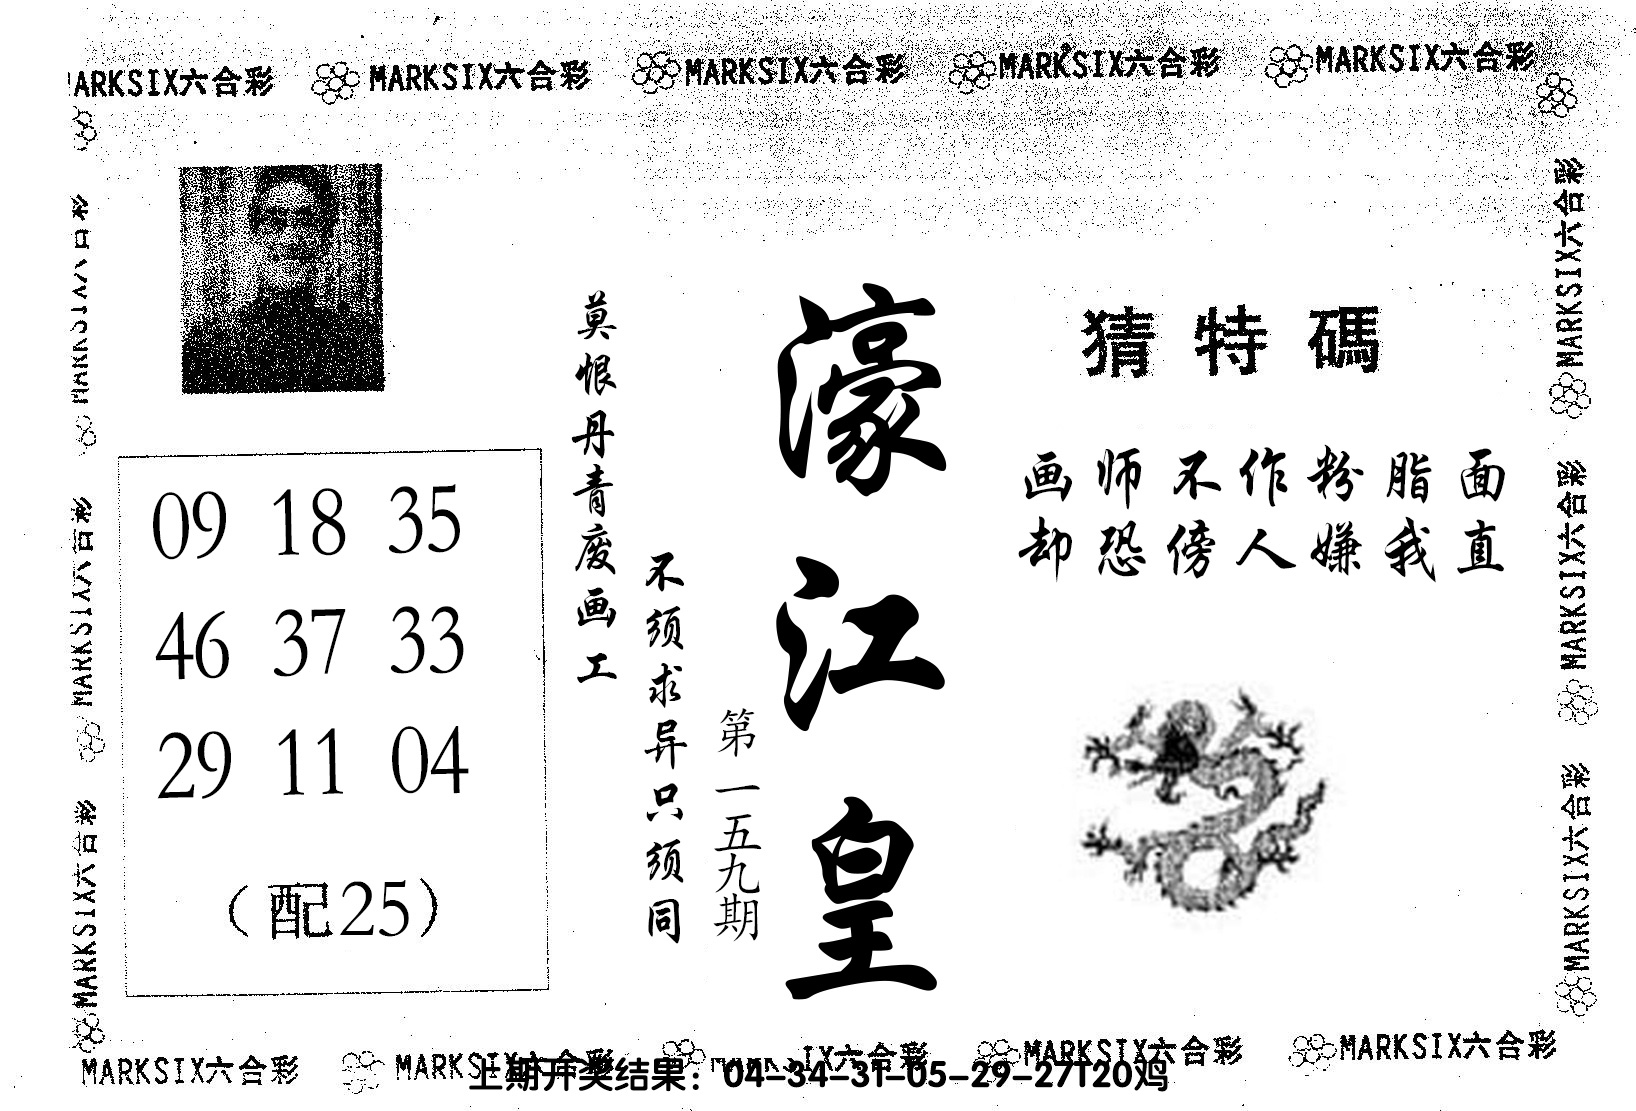 MARKSIX六合彩 MARKSIX六合彩 MARKSIX六合彩 MARKSIX六合彩
猜特碼
画师不作粉脂面
却恐傍人嫌我直
濠江皇
第一五九期
莫恨丹青废画工
不须求异只须同
09 18 35
46 37 33
29 11 04
（配25）
MARKSIX六合彩
MARKSIX六合彩
MARKSIX六合彩
MARKSIX六合彩
MARKSIX六合彩
MARKSIX六合彩 MARKSIX六合彩 MARKSIX六合彩 MARKSIX六合彩
上期开奖结果：04-34-31-05-29-27T20鸡